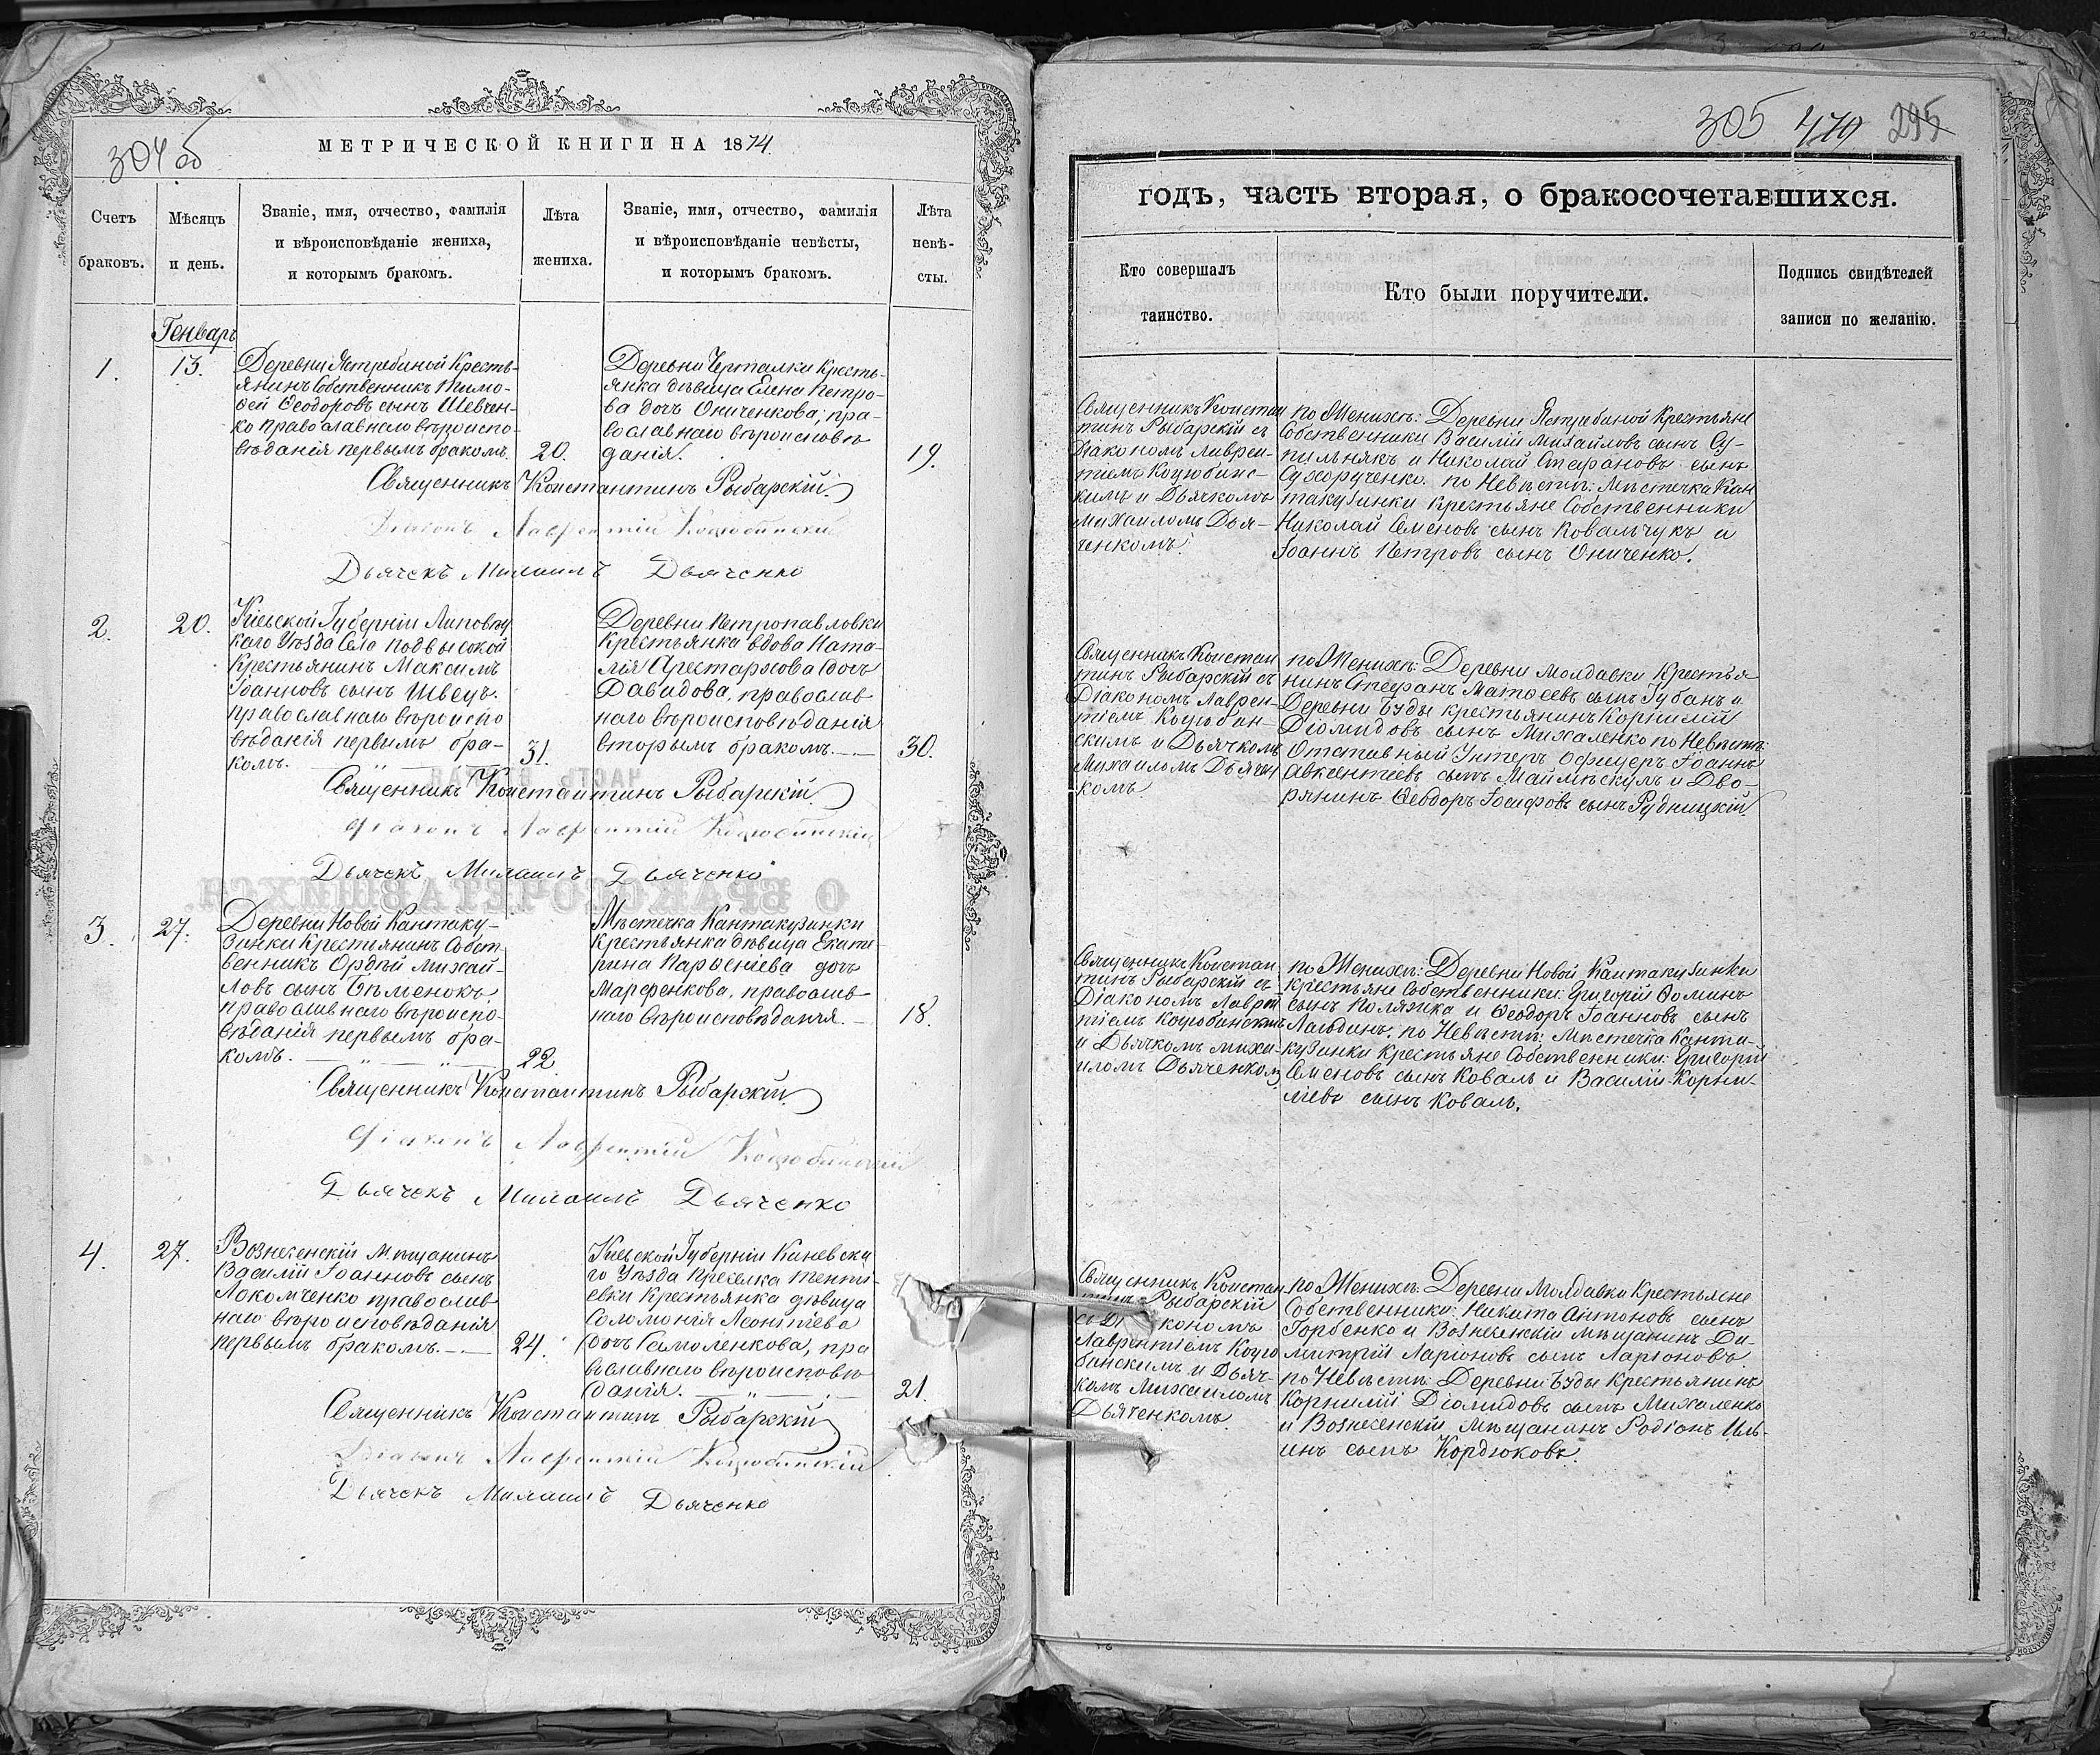 304 об
МЕТРИЧЕСКОЙ КНИГИ НА 1874
Счетъ браковъ.
Мѣсяцъ и день.
Званіе, имя, отчество, фамилія
и вѣроисповѣданіе жениха,
и которымъ бракомъ.
Лѣта
жениха.
Званіе, имя, отчество, фамилія
и вѣроисповѣданіе невѣсты,
и которымъ бракомъ.
Лѣта
невѣ-
сты.
Генварь
1.
13.
Деревни Ястребиной Кресть-
янинъ Собственникъ Тимо-
ѳей Ѳеодоровъ сынъ Шевчен-
ко православнаго вѣроиспо-
вѣданія первымъ бракомъ.
20.
Деревни Чорталки Кресть-
янка дѣвица Елена Петро-
ва дочь Ониченкова, пра-
вославнаго вѣроисповѣ
данія.
19.
Священникъ Константинъ Рыбарскій
Діаконъ Лаврентій Коцюбинскій
Дьячекъ Михаилъ Дьяченко
2.
20.
Кіевской Губерніи Липовец
каго Уѣзда Села Подвысокой
Крестьянинъ Максимъ
Іоанновъ сынъ Швецъ.
православнаго вѣроиспо
вѣданія первымъ бра-
комъ.
31.
Деревни Петропавловки
Крестьянка вдова Ната-
лія Арестархова дочь
Давидова, православ
наго вѣроисповѣданія
вторымъ бракомъ.
30.
Священникъ Константинъ Рыбарскій
Діаконъ Лаврентій Коцюбинскій
Дьячекъ Михаилъ Дьяченко
3.
27.
Деревни Новой Кантаку-
зинки Крестьянинъ Собст-
венникъ Ордѣй Михай-
ловъ сынъ Бѣменокъ,
православнаго вѣроиспо-
вѣданія первымъ бра-
комъ.
22.
Мѣстечка Кантакузинки
Крестьянка дѣвица Екате-
рина Парѳеніева дочь
Марфенкова, православ
наго вѣроисповѣданія.
18.
Священникъ Константинъ Рыбарскій
Діаконъ Лаврентій Коцюбинскій
Дьячекъ Михаилъ Дьяченко
4.
27.
Вознесенскій Мѣщанинъ
Василій Іоанновъ сынъ
Лохомченко православ
наго вѣроисповѣданія
первымъ бракомъ.
24.
Кіевской Губерніи Каневска
го Уѣзда Преселка
евки Крестьянка дѣвица
Соломонія Леонтіева
дочь Самоленкова, пра
вославнаго вѣроисповѣ
данія.
21.
Священникъ Константинъ Рыбарскій
Діаконъ Лаврентій Коцюбинскій
Дьячекъ Михаилъ Дьяченко
305 479 295
годъ, часть вторая, о бракосочетавшихся.
Кто совершалъ
таинство.
Кто были поручители.
Подпись свидѣтелей
записи по желанію.
Священникъ Констан
тинъ Рыбарскій съ
Діакономъ Лаврен-
тіемъ Коцюбинс-
кимъ и Дьячкомъ
Михаиломъ Дья-
ченкомъ.
по Женихѣ: Деревни Ястребиной Крестьяне
Собственники Василій Михайловъ сынъ Су-
пильнякъ и Николай Стефановъ сынъ
Сухорученко. по Невѣстѣ: Мѣстечка Кан
такузинки Крестьяне Собственники
Николай Семеновъ сынъ Ковальчукъ и
Іоаннъ Петровъ сынъ Ониченко.
Священникъ Констан
тинъ Рыбарскій съ
Діакономъ Лаврен-
тіемъ Коцюбин-
скимъ и Дьячкомъ
Михаиломъ Дьячен
комъ.
по Женихѣ: Деревни Молдавки Крестья
нинъ Стефанъ Матѳеевъ сынъ Губанъ и
Деревни Буды крестьянинъ Корнилій
Діомидовъ сынъ Михаленко по Невѣстѣ:
Отставный Унтеръ Офицеръ Іоаннъ
Авксентіевъ сынъ Маймѣскулъ и Дво-
рянинъ Ѳеодоръ Іосифовъ сынъ Рудницкій.
Священникъ Констан
тинъ Рыбарскій съ
Діакономъ Лаврен
тіемъ Коцюбинскимъ
и Дьячкомъ Миха-
иломъ Дьяченкомъ
по Женихѣ: Деревни Новой Кантакузинки
крестьяне Собственники: Григорій Ѳоминъ
сынъ Поляжка и Ѳеодоръ Іоанновъ сынъ
Лагодинъ. по Невѣстѣ: Мѣстечка Канта-
кузинки Крестьяне Собственники: Григорій
Семеновъ сынъ Коваль и Василій Корни-
ліевъ сынъ Коваль.
Священникъ Констан
тинъ Рыбарскій
съ Діакономъ
Лаврентіемъ Коцю
бинскимъ и Дьяч-
комъ Михаиломъ
Дьяченкомъ.
по Женихѣ: Деревни Молдавки Крестьяне
Собственники: Никита Антоновъ сынъ
Горбенко и Вознесенскій мѣщанинъ Ди-
митрій Ларіоновъ сынъ Ларіоновъ.
по Невѣстѣ: Деревни Буды Крестьянинъ
Корнилій Діомидовъ сынъ Михаленко
и Вознесенскій Мѣщанинъ Родіонъ Иль-
инъ сынъ Кордюковъ.